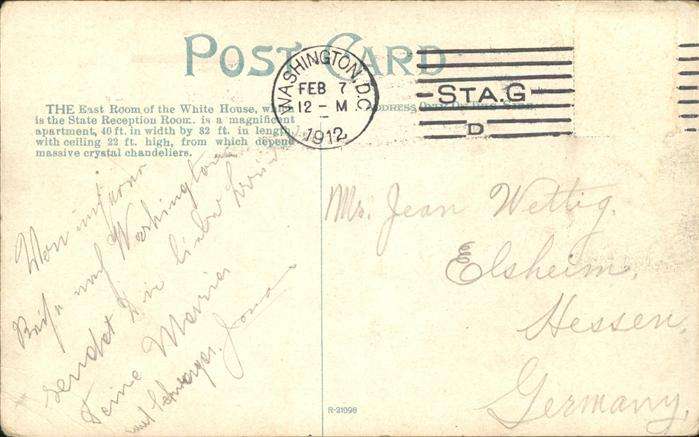 POST CARD
THE East Room of the White House,
is the State Reception Room. is a magnificent
apartment, 40 ft. in width by 82 ft. in length
with ceiling 22 ft. high, from which depend
massive crystal chandeliers.
WASHINGTON, D.C.
FEB 7
12-M
1912
STA. G
D
Mr. Jean Wettig.
Elsheim,
Hessen,
Germany,
Von unserer
Reise nach Washington
sendet
Deine
und
R-31098